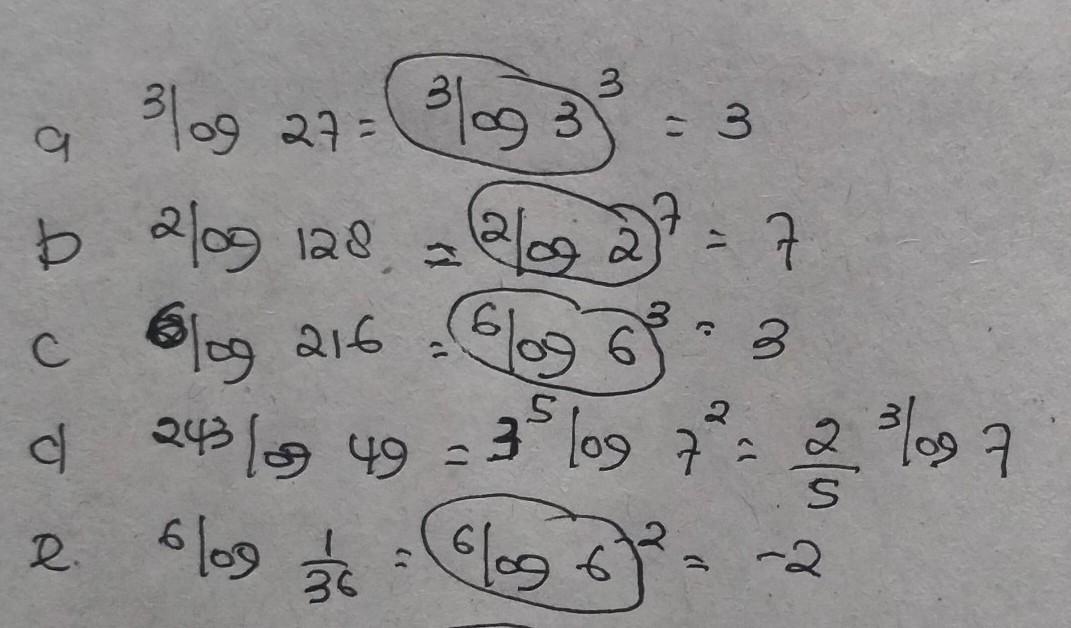 a ³log 27 = ³log 3³ = 3
b ²log 128 = ²log 2⁷ = 7
c ⁶log 216 = ⁶log 6³ = 3
d ²⁴³log 49 = 3⁵log 7² = 2/5 ³log 7
e. ⁶log 1/36 = ⁶log 6⁻² = -2